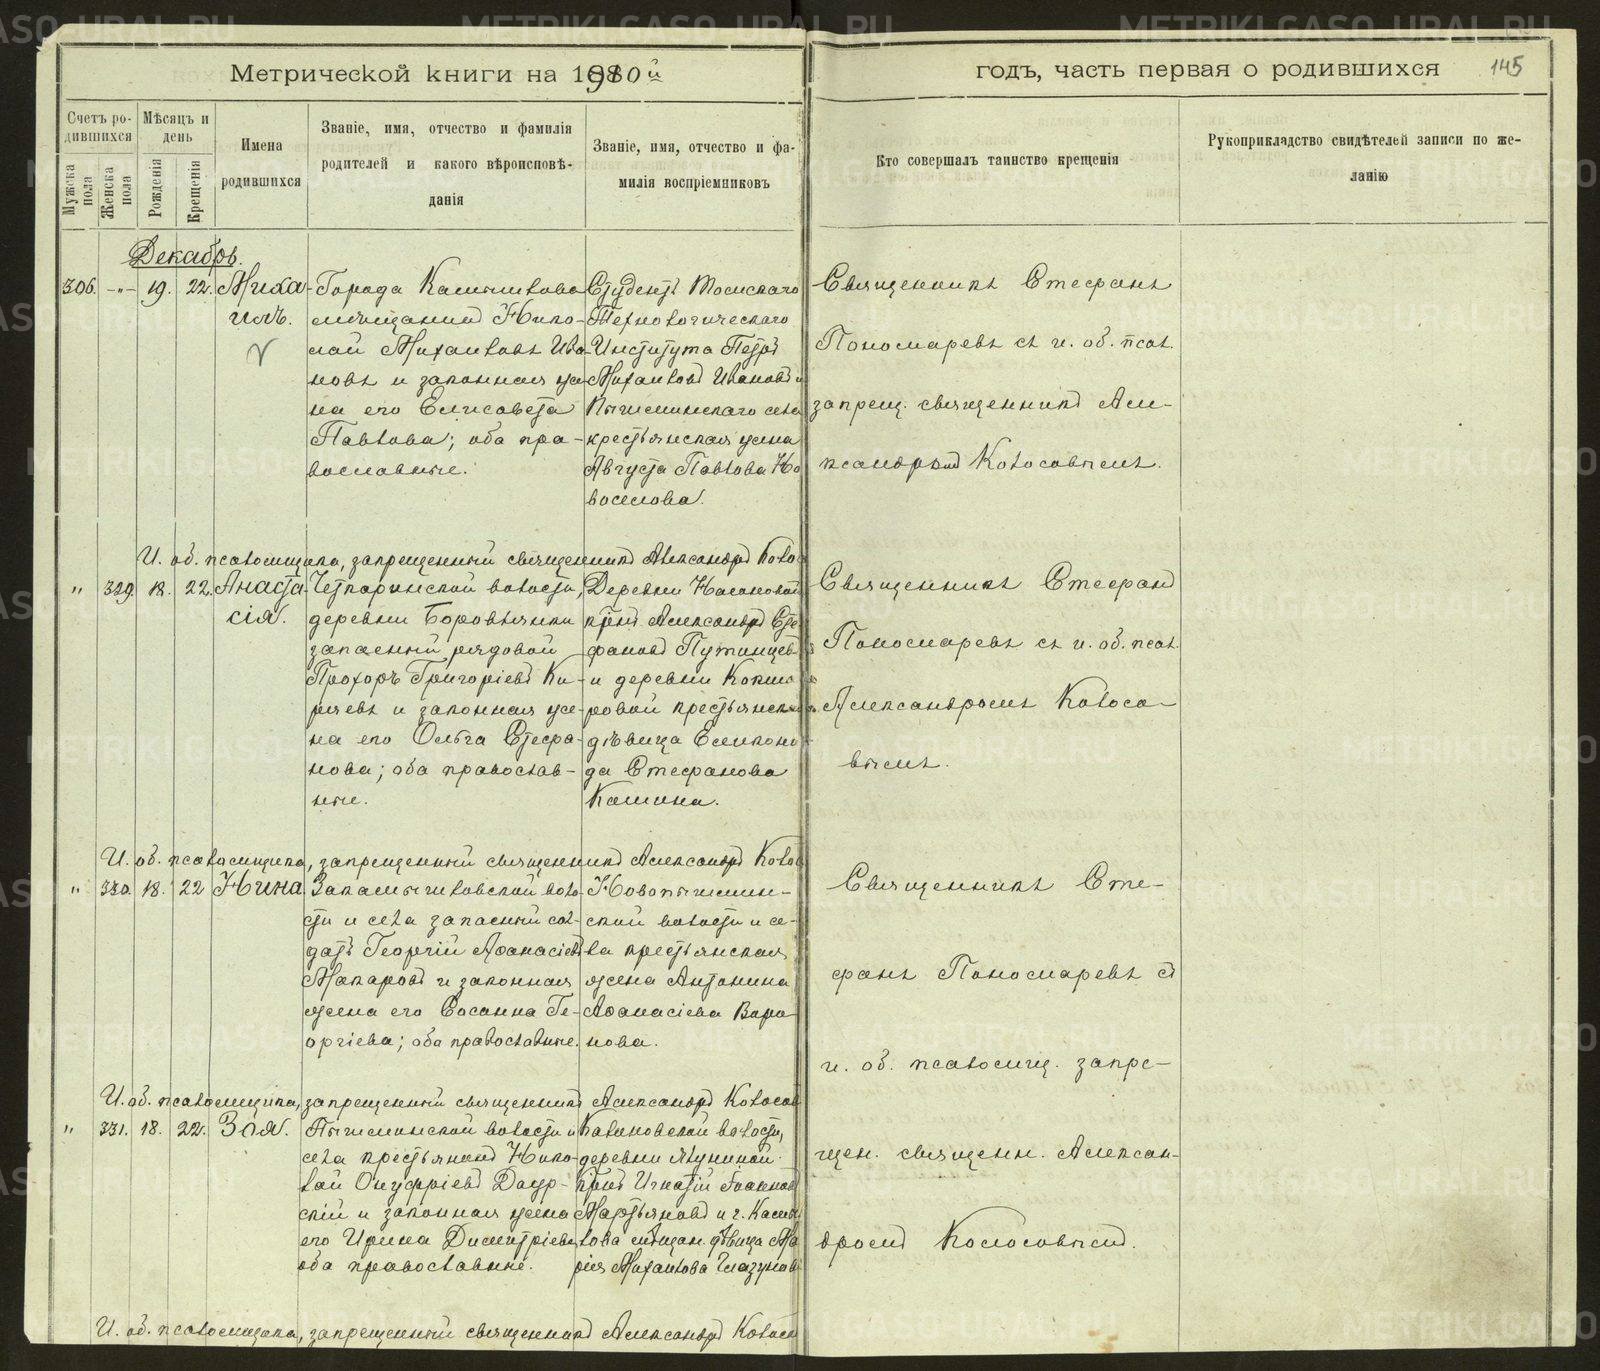 Метрической книги на 1910й
годъ, часть первая о родившихся
145
Счетъ ро-
дившихся
Мѣсяцъ и
день
Имена
родившихся
Званіе, имя, отчество и фамилія
родителей и какого вѣроисповѣ-
данія
Званіе, имя, отчество и фа-
милія воспріемниковъ
Кто совершалъ таинство крещенія
Рукоприкладство свидѣтелей записи по же-
ланію
Мужска
пола
Женска
пола
Рожденія
Крещенія
Декабрь.
306. -"- 19. 22. Миха-
илъ.
Города Камышлова
мѣщанинъ Нико-
лай Михаиловъ Ива-
новъ и законная же-
на его Елисавета
Павлова; оба пра-
вославные.
Студентъ Томскаго
Технологическаго
Института Петръ
Михаиловъ Ивановъ и
Пышминскаго села
крестьянская жена
Августа Павлова Но-
воселова.
Священникъ Стефанъ
Пономаревъ съ и. об. псал.
запрещ. священникомъ Але-
ксандромъ Колосовымъ.
И. об. псаломщика, запрещенный священникъ Александръ Колос
" 329. 18. 22. Анаста-
сія.
Четкаринской волости,
деревни Боровлянки
запасный рядовой
Прохоръ Григоріевъ Ки-
ряевъ и законная же-
на его Ольга Стефа-
нова; оба православ-
ные.
Деревни
крест. Александръ Сте-
фановъ Путинцевъ
и деревни Кокша-
ровой крестьянская
дѣвица Еликони-
да Стефанова
Кашина.
Священникъ Стефанъ
Пономаревъ съ и. об. псал.
Александромъ Колосо-
вымъ.
И. об. псаломщика, запрещенный священникъ Александръ Колос
" 330. 18. 22 Нина
Закамышловской воло-
сти и села запасный сол-
датъ Георгій Аѳанасіевъ
Макаровъ и законная
жена его Сосанна Ге-
оргіева; оба православные.
Новопышмин-
ской волости и се-
ла крестьянская
жена Антонина
Аѳанасіева Вара-
нова.
Священникъ Сте-
фанъ Пономаревъ съ
и. об. псаломщ. запре-
щен. священн. Алексан-
дромъ Колосовымъ.
И. об. псаломщика, запрещенный священникъ Александръ Колосов
" 331. 18. 22. Зоя.
Пышминской волости и
села крестьянинъ Нико-
лай Онуфріевъ Даур-
скій и законная жена
его Ирина Димитріева
оба православные.
волости,
деревни Якуниной
крест. Игнатій Іоанновъ
Мартьяновъ и г. Камыш-
лова мѣщан. дѣвица Ма-
рія Михаилова Глазунова
И. об. псаломщика, запрещенный священникъ Александръ Колосо
METRIKI.GASO-URAL.RU